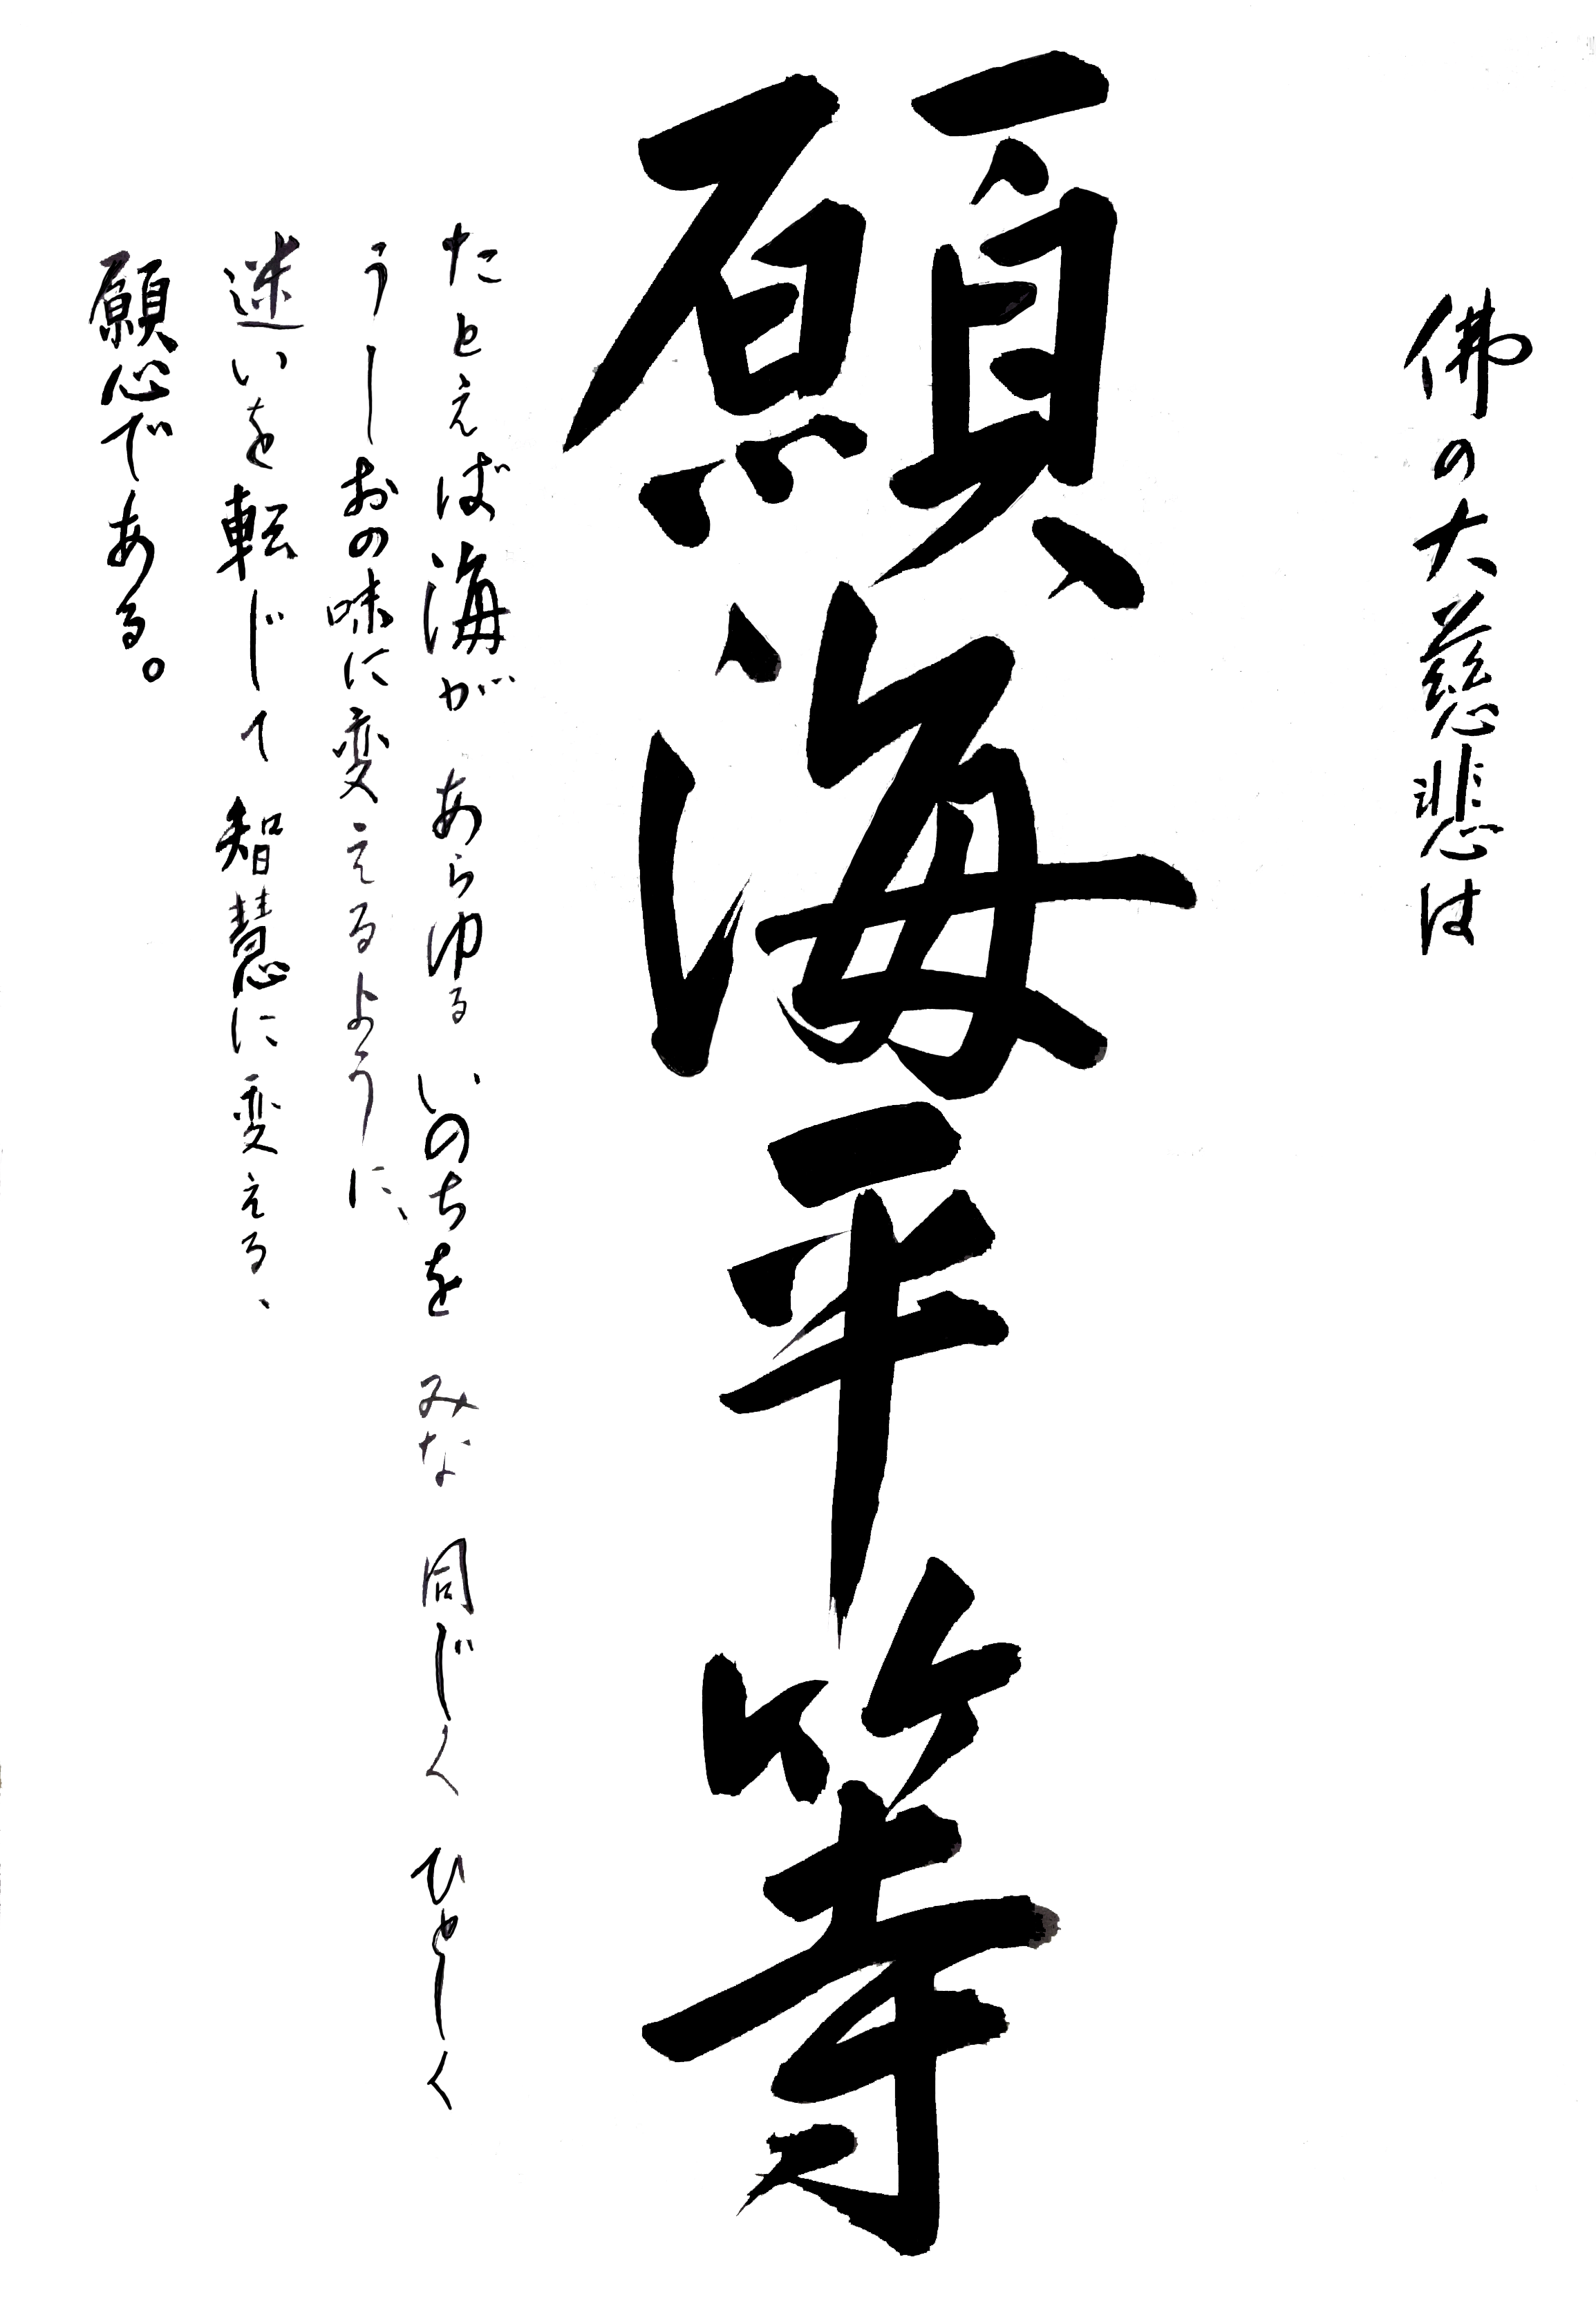 佛の大慈悲は
願海平等
たとえば海が あらゆる いのちを みな 同じく ひとしく
うしおの味に変えるように、
迷いを転じて 智慧に変える、
願心である。